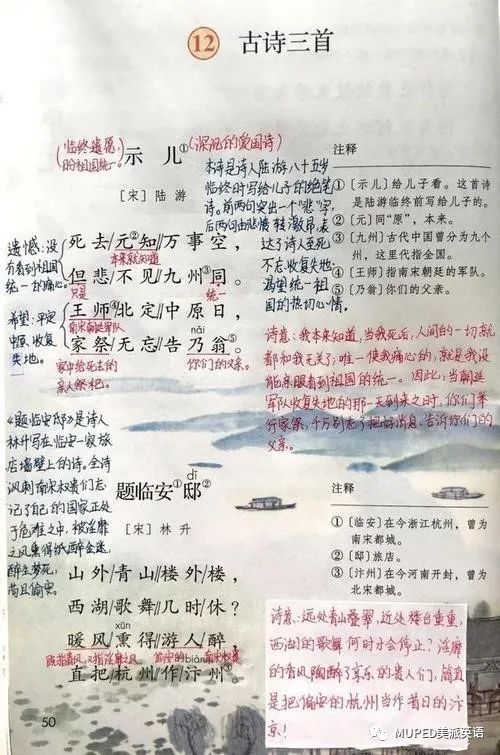 12 古诗三首
(临终遗愿
盼祖国统一。)
示儿①
(深沉的爱国诗)
[宋] 陆游
本诗是诗人陆游八十五岁
临终时写给儿子的绝笔
诗。前两句突出一个"悲"字,
后两句由悲情转激昂,表
达了诗人至死
不忘收复失地,
渴望统一祖
国的热切心情。
遗憾:没
有看到祖国
统一的痛心。
死去/元②知/万事空,
本来就知道
但悲/不见/九州③同。
只是
统一
希望:平定
中原,收复
失地。
王师④北定/中原日,
南宋南廷军队
nǎi
家祭/无忘/告乃翁⑤。
家中给死去的
亲人祭祀。
你们的父亲。
注释
①[示儿]给儿子看。这首诗
是陆游临终前写给儿子的。
②[元]同"原",本来。
③[九州]古代中国曾分为九个
州,这里代指全国。
④[王师]指南宋朝廷的军队。
⑤[乃翁]你们的父亲。
诗意:我本来知道,当我死后,人间的一切就
都和我无关了;唯一使我痛心的,就是我没
能亲眼看到祖国的统一。因此,当朝廷
军队收复失地的那一天到来之时,你们举
行家祭,千万别忘了把好消息,告诉你们的
父亲。
《题临安邸》是诗人
林升写在临安一家旅
店墙壁上的诗。全诗
讽刺南宋权贵们忘
记了自己的国家正处
于危难之中,被淫靡
之风熏得纸醉金迷,
醉生梦死,
苟且偷安。
dǐ
题临安①邸②
[宋] 林升
山外/青山/楼外/楼,
西湖/歌舞/几时/休?
xūn
暖风/熏得/游人/醉
既指春风,又指淫靡之风
偷安的
南宋权贵
biàn
直把/杭州/作汴州③
注释
①[临安]在今浙江杭州,曾为
南宋都城。
②[邸]旅店。
③[汴州]在今河南开封,曾为
北宋都城。
诗意:远处青山叠翠,近处楼台重重,
西湖的歌舞何时才会停止?淫靡
的香风陶醉了享乐的贵人们,简直
是把偏安的杭州当作昔日的汴
京!
50
MUPED美派英语